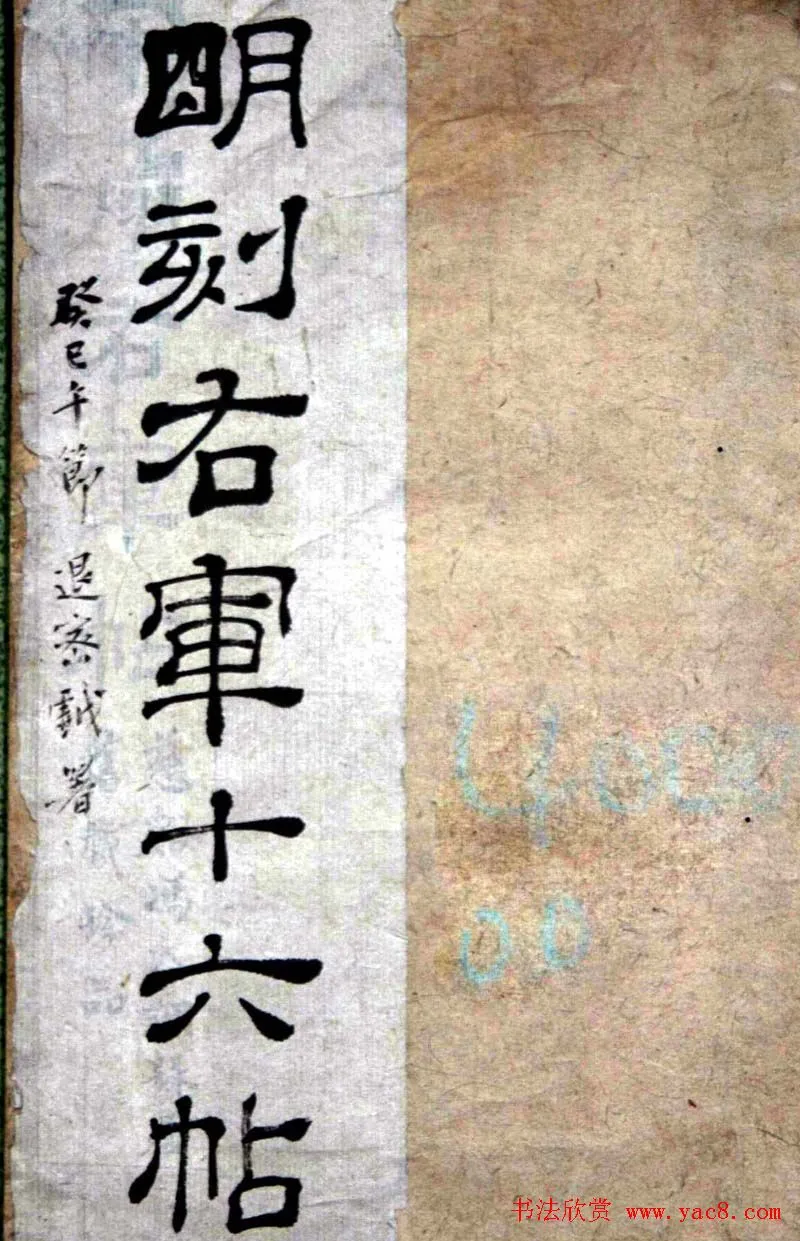 明刻右軍十六帖
癸巳午節 退密
署
4000
00
书法欣赏 www.yac8.com